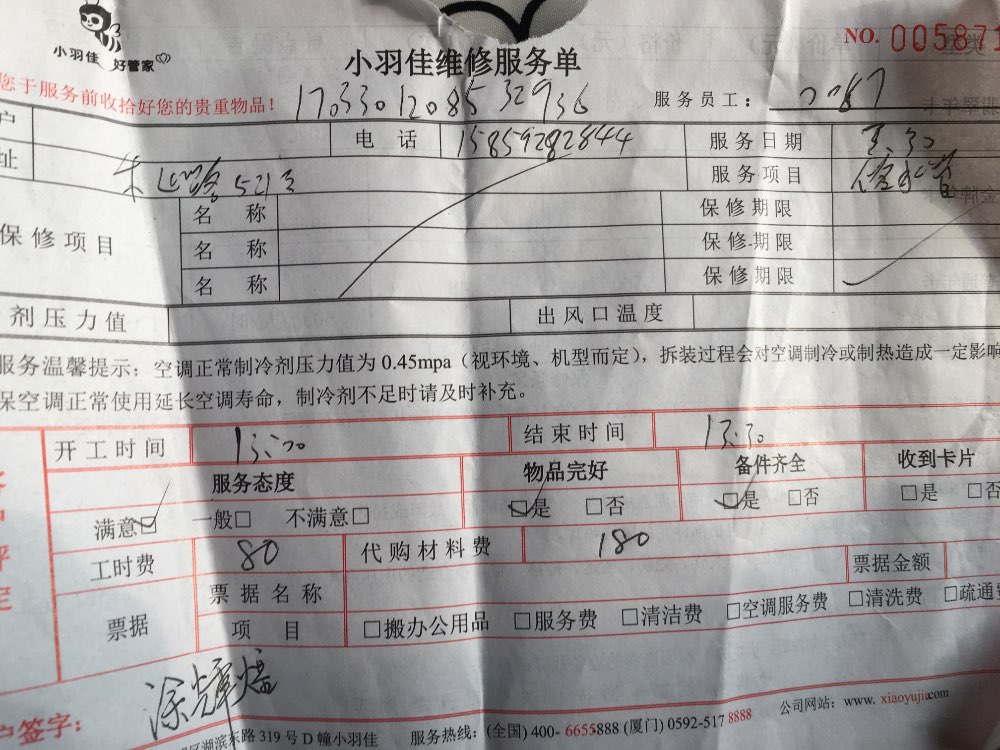 小羽佳 好管家
NO. 005871
小羽佳维修服务单
您于服务前收拾好您的贵重物品！
17033012085 32936
服务员工：
户
电 话 15859282844 服务日期 3.30
址 路521号 服务项目 修水管
保修项目 名 称 保修期限
名 称 保修期限
名 称 保修期限
剂压力值 出风口温度
服务温馨提示：空调正常制冷剂压力值为 0.45mpa（视环境、机型而定），拆装过程会对空调制冷或制热造成一定影响
保空调正常使用延长空调寿命，制冷剂不足时请及时补充。
开工时间 13:00 结束时间 13:30
服务态度 物品完好 备件齐全 收到卡片
满意☑ 一般□ 不满意□ ☑是 □否 ☑是 □否 □是 □否
工时费 80 代购材料费 180
票据 票据名称 票据金额
项 目 □搬办公用品 □服务费 □清洁费 □空调服务费 □清洗费 □疏通费
户签字： 涂辉煌
区湖滨东路 319 号 D 幢小羽佳 服务热线：(全国) 400- 6655888 (厦门) 0592-517 8888 公司网站：www. xiaoyujia.com